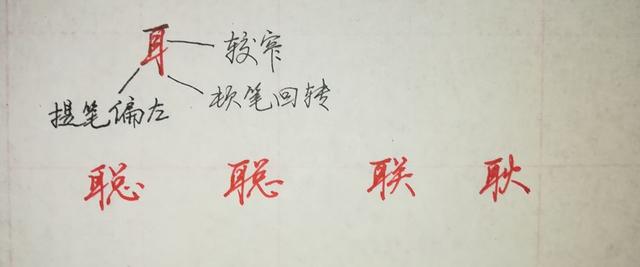 耳 较窄
提笔偏左 顿笔回转
聪 聪 联 耿